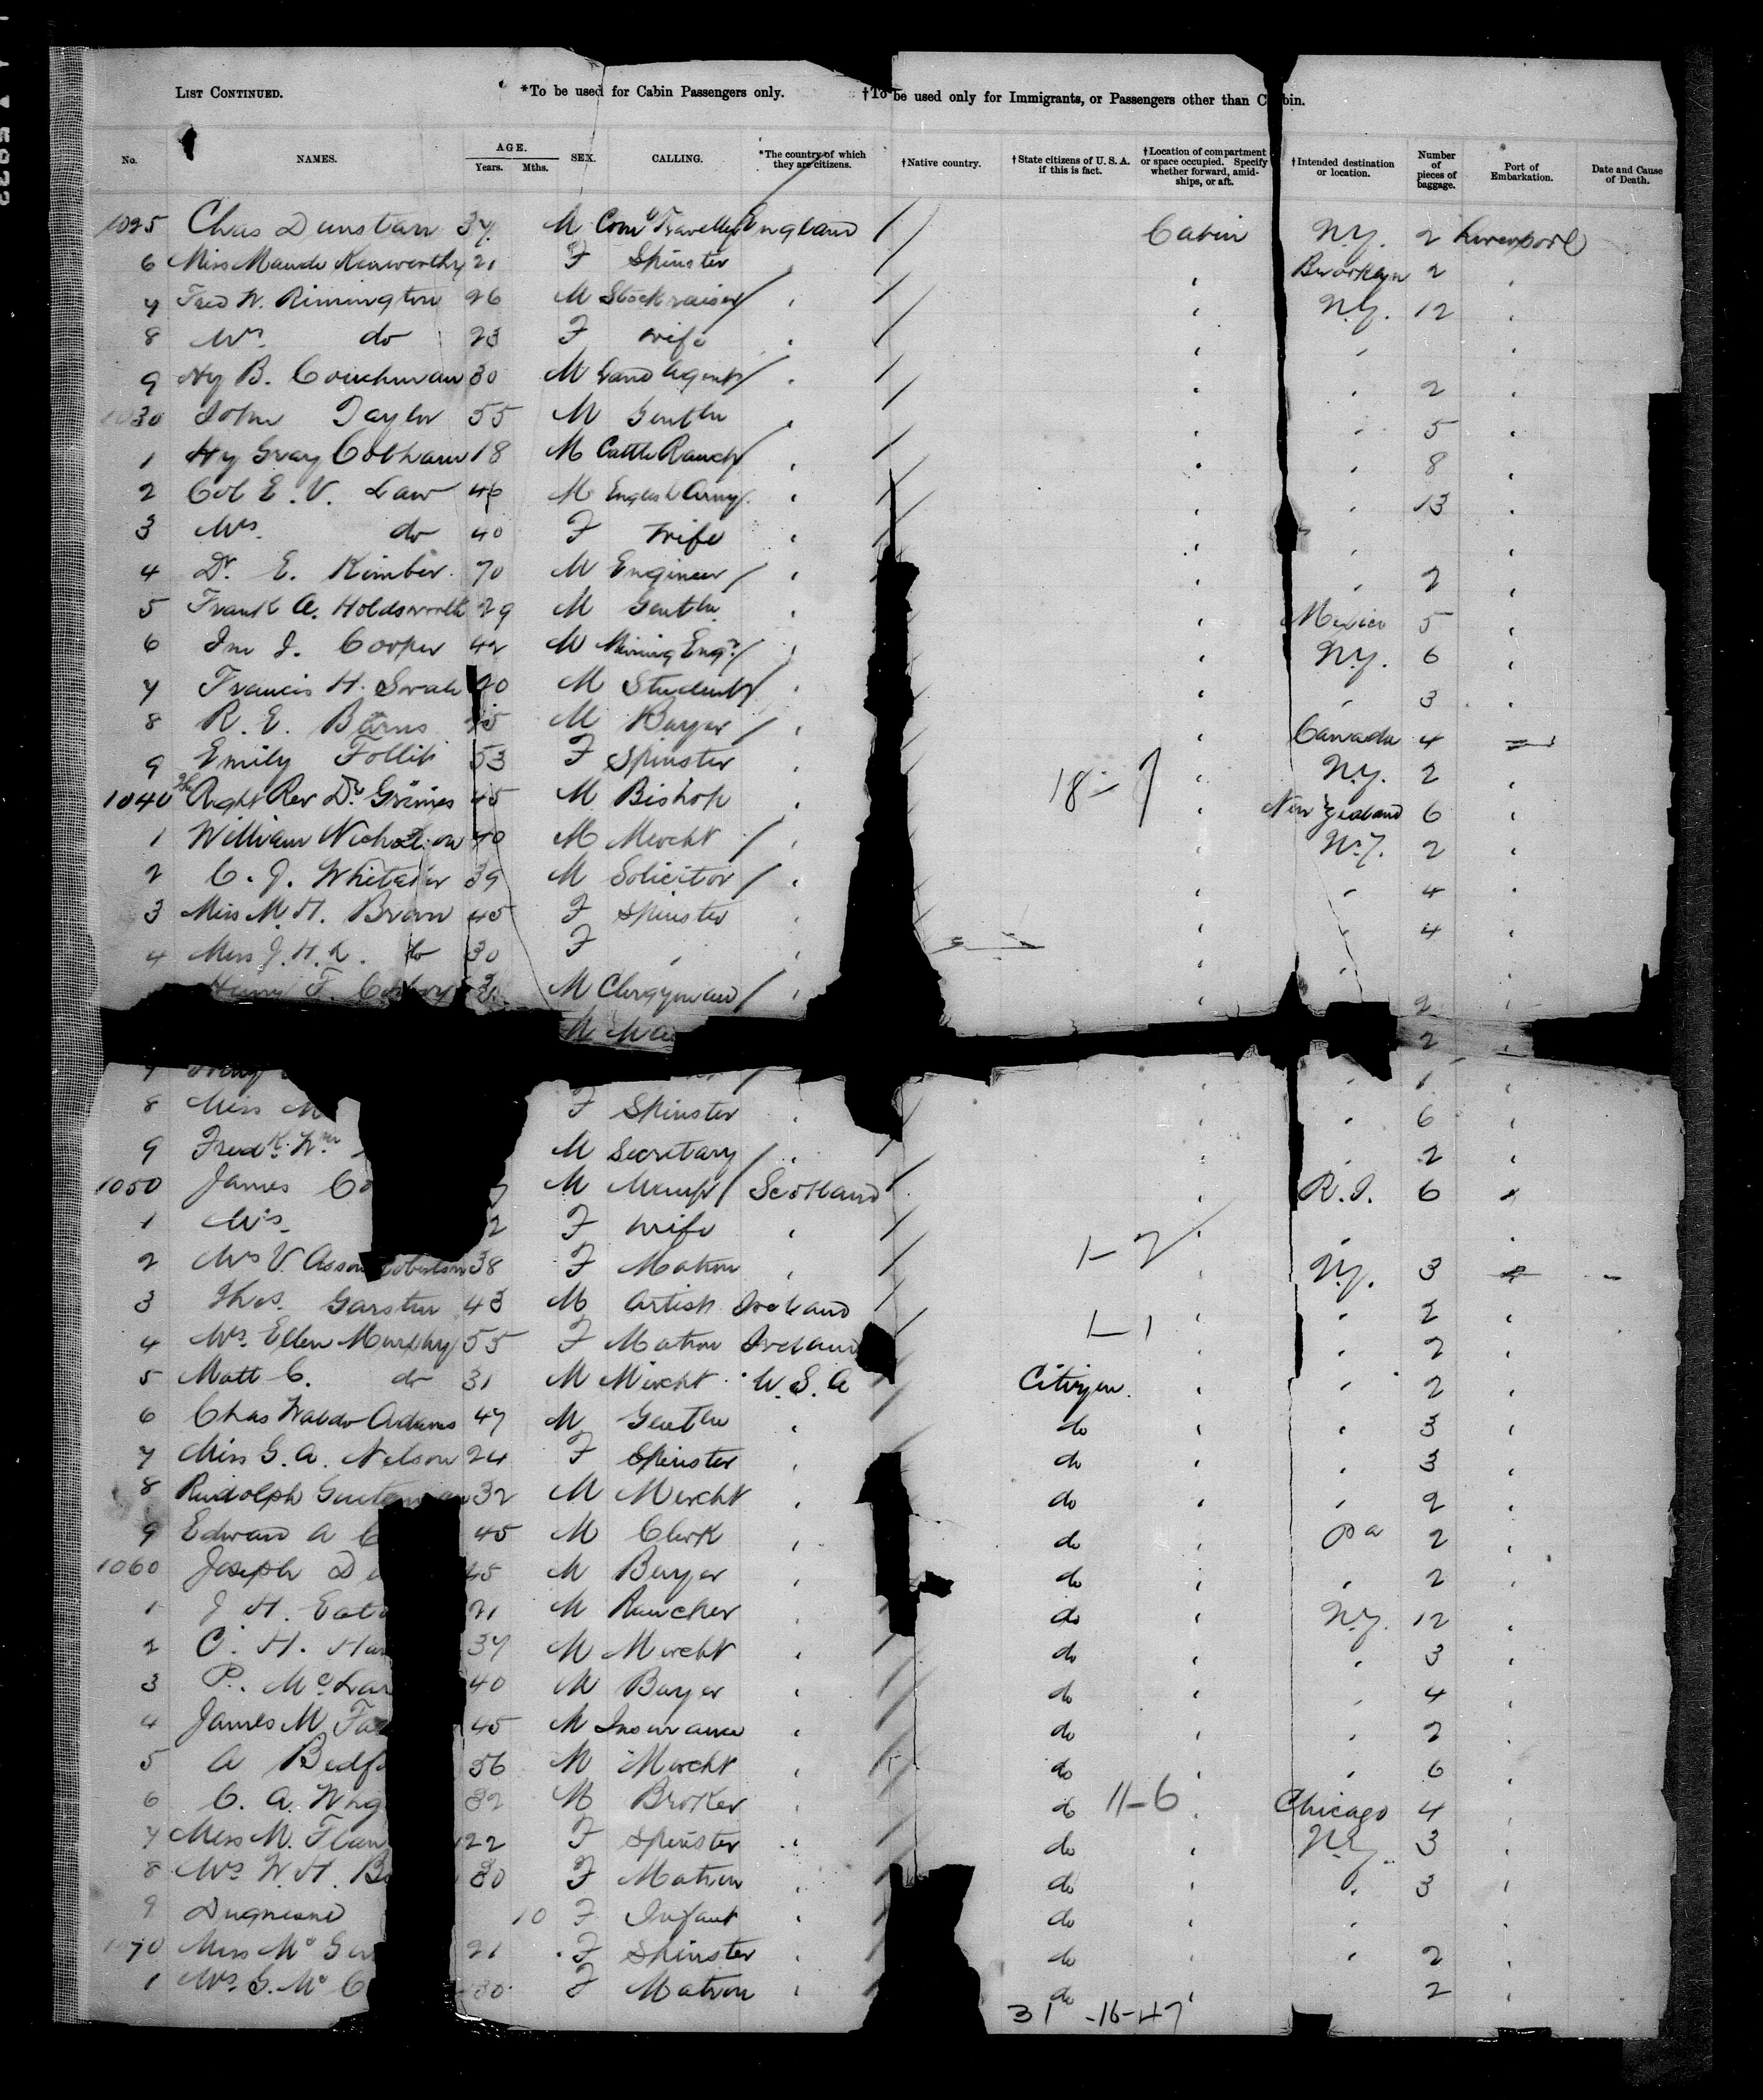 LIST CONTINUED. *To be used for Cabin Passengers only. †To be used only for Immigrants, or Passengers other than Cabin.
No. NAMES. AGE. Years. Mths. SEX. CALLING. *The country of which they are citizens. †Native country. †State citizens of U. S. A. if this is fact. †Location of compartment or space occupied. Specify whether forward, amidships, or aft. †Intended destination or location. Number of pieces of baggage. Port of Embarkation. Date and Cause of Death.
1025 Chas Dunstan 37 M Coml Traveller England Cabin N.Y. 2 Liverpool
6 Miss Maude Kenworthy 21 F Spinster Brooklyn 2
7 Fred W. Rimington 26 M Stockraiser N.Y. 12
8 Mrs. do 23 F Wife
9 Hy B. Couchman 30 M Land Agent 2
1030 John Taylor 55 M Gentln 5
1 Hy Gray Cobham 18 M Cattle Ranch 8
2 Col E. V. Law 46 M English Army 13
3 Mrs. do 40 F Wife
4 Dr. E. Kimber 70 M Engineer 2
5 Frank A. Holdsworth 29 M Gentln Mexico 5
6 Jno J. Cooper 42 M Mining Engr N.Y. 6
7 Francis H. 20 M Student 3
8 R. E. Barns M Buyer Canada 4
9 Emily 53 F Spinster N.Y. 2
1040 The Right Rev Dr Grimes 45 M Bishop 18-7 New Zealand 6
1 William Nicholson 40 M Mercht N.Y. 2
2 C. J. Whitaker 39 M Solicitor 4
3 Miss M. H. Brown 45 F Spinster 4
4 Miss J. H. K. do 30 F
Henry F. M Clergyman 2
M 2
7 1
8 Miss M F Spinster 6
9 Fredk. Wm M Secretary 2
1050 James Co M Manfr Scotland R.I. 6
1 Mrs. 2 F Wife
2 Mrs V. Robertson 38 F Matron 1-2 N.Y. 3
3 Thos. Garstin 43 M Artist Ireland 2
4 Mrs. Ellen Murphy 55 F Matron Ireland 1-1 2
5 Matt C. do 31 M Mercht U.S.A Citizen. 2
6 Chas Waldo Adams 47 M Gentln do 3
7 Miss G. A. Nelson 24 F Spinster do 3
8 Rudolph 32 M Mercht do 2
9 Edward A C 45 M Clerk do Pa 2
1060 Joseph D 45 M Buyer do 2
1 J H. Eat 21 M Rancher do N.Y. 12
2 C. H. Ha 37 M Mercht do 3
3 P. McLar 40 M Buyer do 4
4 James M Fa 45 M Insurance do 2
5 A Bedf 56 M Mercht do 6
6 C. A. Whg 32 M Broker do 11-6 Chicago 4
7 Miss M. Flan 22 F Spinster do N.Y. 3
8 Mrs W. H. B 30 F Matron do 3
9 Duquesne 10 F Infant do
1070 Miss Mc G 21 F Spinster do 2
1 Mrs. G. Mc C 30 F Matron do 2
31 -16-47